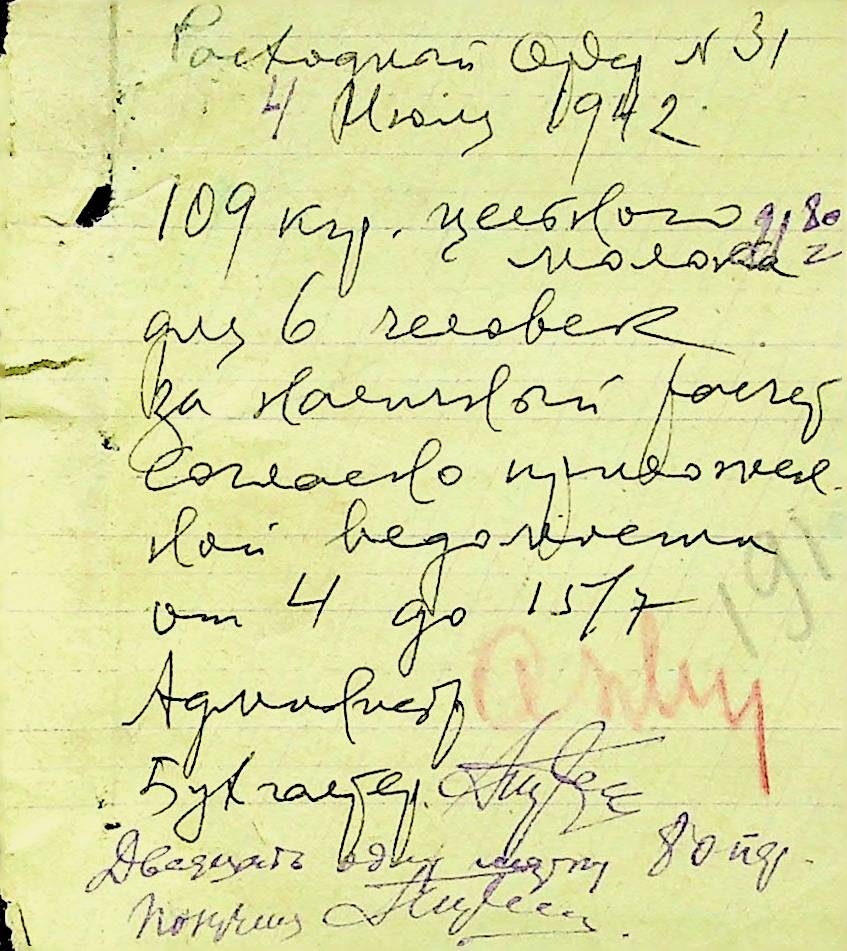 Расходный Орд N 31
4 Июля 1942
109 кгр. цельного
молока
для 6 человек
за наличный расчет
согласно приложен
ной ведомости
от 4 до 15/7
191
Администр
Бухгалтер.
Двадцать один 80 пф.
Получил